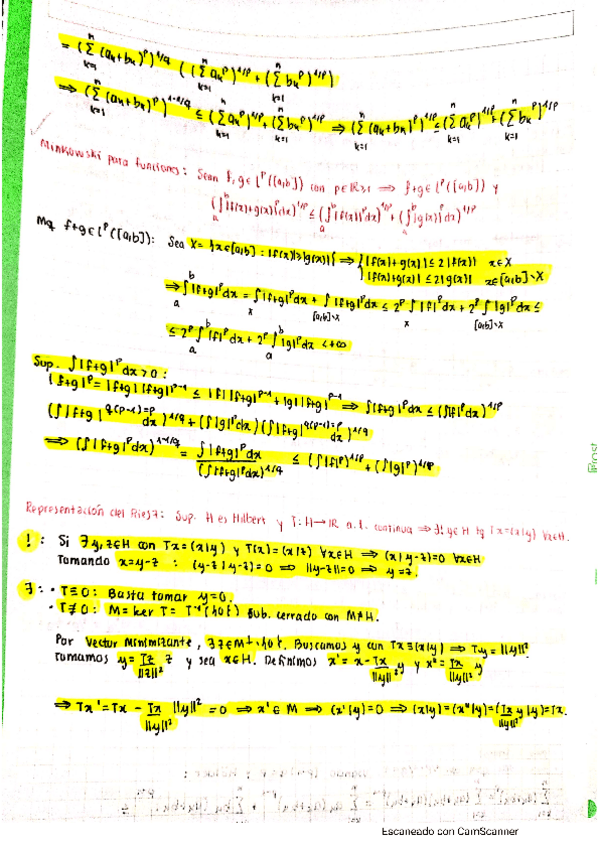 = (∑_{k=1}^n (a_k+b_k)^p)^{1/q} ((∑_{k=1}^n a_k^p)^{1/p} + (∑_{k=1}^n b_k^p)^{1/p})
⟹ (∑_{k=1}^n (a_k+b_k)^p)^{1-1/q} ≤ (∑_{k=1}^n a_k^p)^{1/p} + (∑_{k=1}^n b_k^p)^{1/p} ⟹ (∑_{k=1}^n (a_k+b_k)^p)^{1/p} ≤ (∑_{k=1}^n a_k^p)^{1/p} + (∑_{k=1}^n b_k^p)^{1/p}
Minkowski para funciones: Sean f, g ∈ L^p([a,b]) con p∈ℝ≥1 ⟹ f+g ∈ L^p([a,b]) y
(∫_a^b |f(x)+g(x)|^p dx)^{1/p} ≤ (∫_a^b |f(x)|^p dx)^{1/p} + (∫_a^b |g(x)|^p dx)^{1/p}
Mq f+g ∈ L^p([a,b]): Sea X = {x∈[a,b] : |f(x)|≥|g(x)|} ⟹ { |f(x)+g(x)| ≤ 2|f(x)| x∈X
|f(x)+g(x)| ≤ 2|g(x)| x∈[a,b]∖X
⟹ ∫_a^b |f+g|^p dx = ∫_X |f+g|^p dx + ∫_{[a,b]∖X} |f+g|^p dx ≤ 2^p ∫_X |f|^p dx + 2^p ∫_{[a,b]∖X} |g|^p dx ≤
≤ 2^p ∫_a^b |f|^p dx + 2^p ∫_a^b |g|^p dx < +∞
Sup. ∫|f+g|^p dx > 0 :
|f+g|^p = |f+g| |f+g|^{p-1} ≤ |f| |f+g|^{p-1} + |g| |f+g|^{p-1} ⟹ ∫|f+g|^p dx ≤ (∫|f|^p dx)^{1/p}
(∫|f+g|^{q(p-1)=p} dx)^{1/q} + (∫|g|^p dx) (∫|f+g|^{q(p-1)=p} dx)^{1/q}
⟹ (∫|f+g|^p dx)^{1-1/q} = ∫|f+g|^p dx / (∫|f+g|^p dx)^{1/q} ≤ (∫|f|^p)^{1/p} + (∫|g|^p)^{1/p}
Representación del Riesz: Sup. H es Hilbert y T: H→ℝ a.l. continua ⟹ ∃! y∈H tq Tx=(x|y) ∀x∈H.
! : Si ∃ y, z∈H con Tx=(x|y) y T(x)=(x|z) ∀x∈H ⟹ (x|y-z)=0 ∀x∈H
Tomando x=y-z : (y-z|y-z)=0 ⟹ ||y-z||=0 ⟹ y=z.
∃ : · T≡0 : Basta tomar y=0.
· T≢0 : M = ker T = T^{-1}({0}) sub. cerrado con M≠H.
Por vector minimizante, ∃ z∈M^⊥∖{0}. Buscamos y con Tx=(x|y) ⟹ Ty=||y||².
Tomamos y = Tz/||z||² z y sea x∈H. Definimos x' = x - Tx/||y||² y y x'' = Tx/||y||² y
⟹ Tx' = Tx - Tx/||y||² ||y||² = 0 ⟹ x'∈M ⟹ (x'|y)=0 ⟹ (x|y)=(x''|y)=(Tx/||y||² y|y)=Tx.
Escaneado con CamScanner